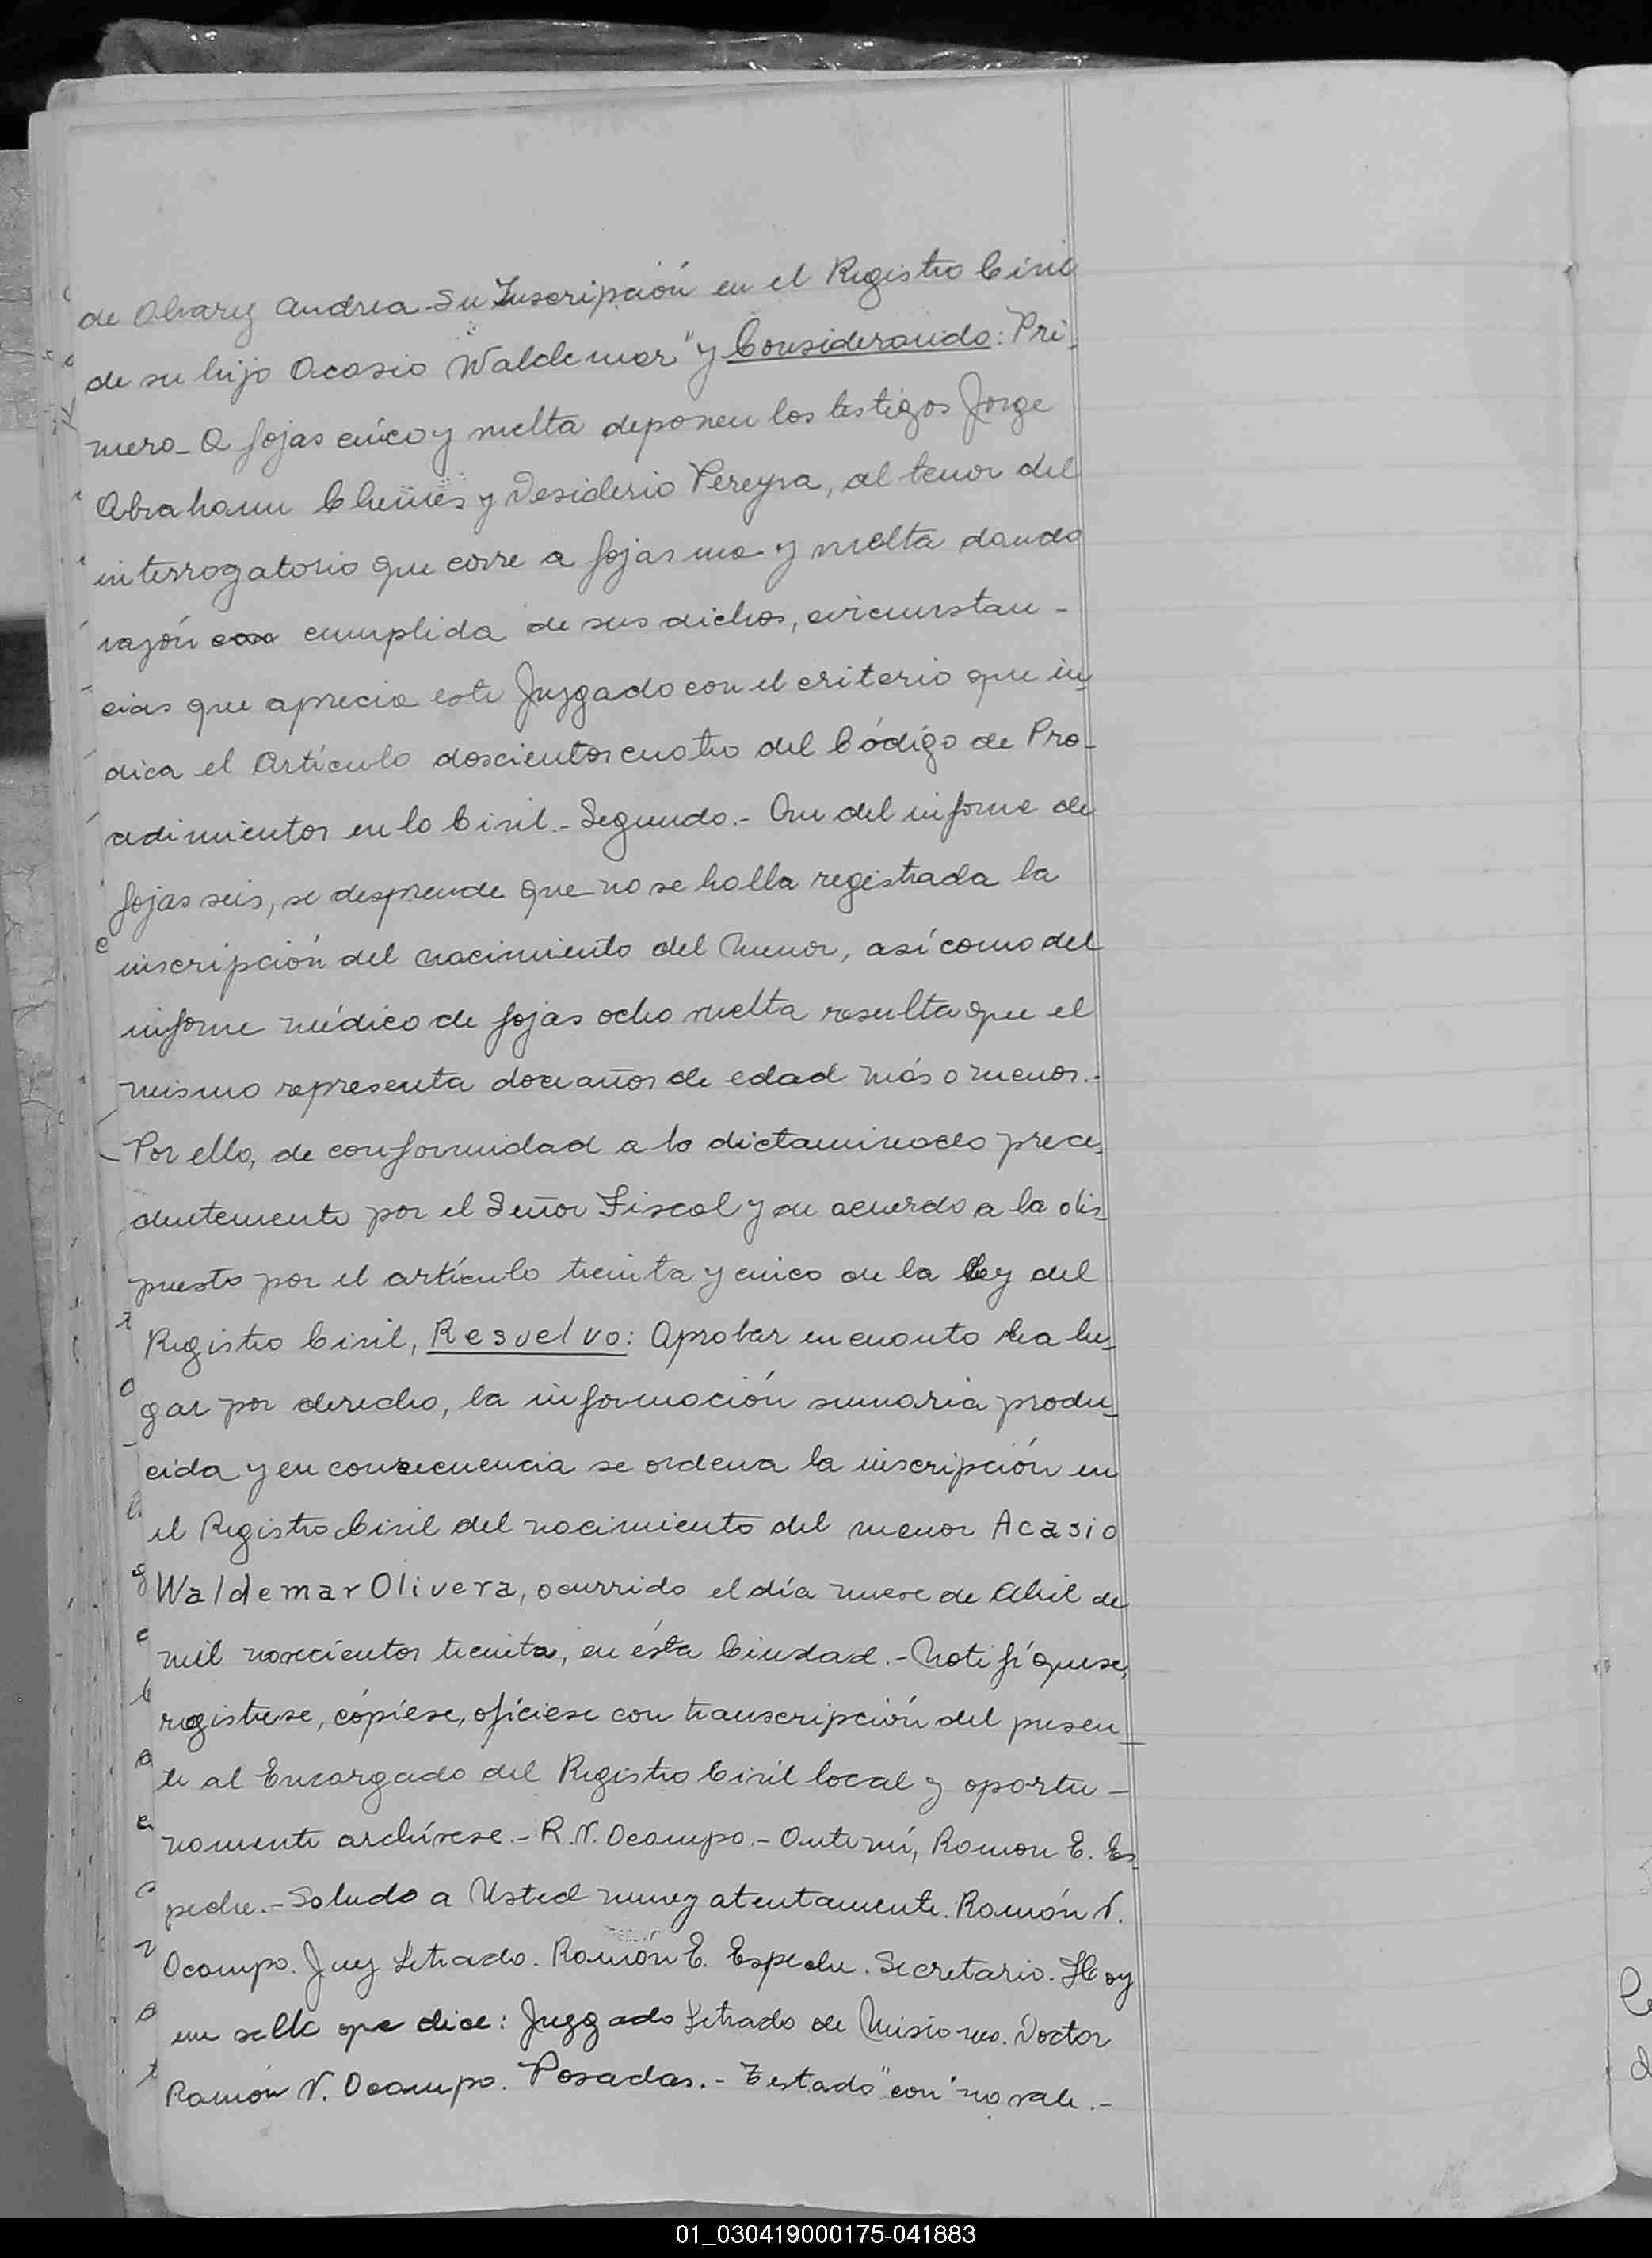 de Alvarez Andrea - Su Inscripción en el Registro Civil
de su hijo Acasio Waldemar" y Considerando: Pri-
mero_ A fojas cinco y vuelta deponen los testigos Jorge
Abraham Chemes y Desiderio Pereyra, al tenor del
interrogatorio que corre a fojas una y vuelta dando
razón con cumplida de sus dichos, circunstan-
cias que aprecia este Juzgado con el criterio que in-
dica el Artículo doscientos cuatro del Código de Pro-
cedimientos en lo Civil.- Segundo.- Que del informe de
fojas seis, se desprende que no se halla registrada la
inscripción del nacimiento del menor, así como del
informe médico de fojas ocho vuelta resulta que el
mismo representa doce años de edad más o menos.-
Por ello, de conformidad a lo dictaminado prece-
dentemente por el Señor Fiscal y de acuerdo a lo dis-
puesto por el artículo treinta y cinco de la Ley del
Registro Civil, Resuelvo: Aprobar en cuanto ha lu-
gar por derecho, la información sumaria produ-
cida y en consecuencia se ordena la inscripción en
el Registro Civil del nacimiento del menor Acasio
Waldemar Olivera, ocurrido el día nueve de Abril de
mil novecientos treinta, en ésta Ciudad.- Notifíquese,
regístrese, cópiese, ofíciese con transcripción del presen-
te al Encargado del Registro Civil local y oportu-
namente archívese.- R.V. Ocampo.- Ante mí, Ramon E. Es-
peche.- Saludo a Usted muy atentamente. Ramón V.
Ocampo. Juez Letrado. Ramón E. Espeche. Secretario. Hay
un sello que dice: Juzgado Letrado de Misiones. Doctor
Ramón V. Ocampo. Posadas.- Testado "con" no vale.-
01_030419000175-041883